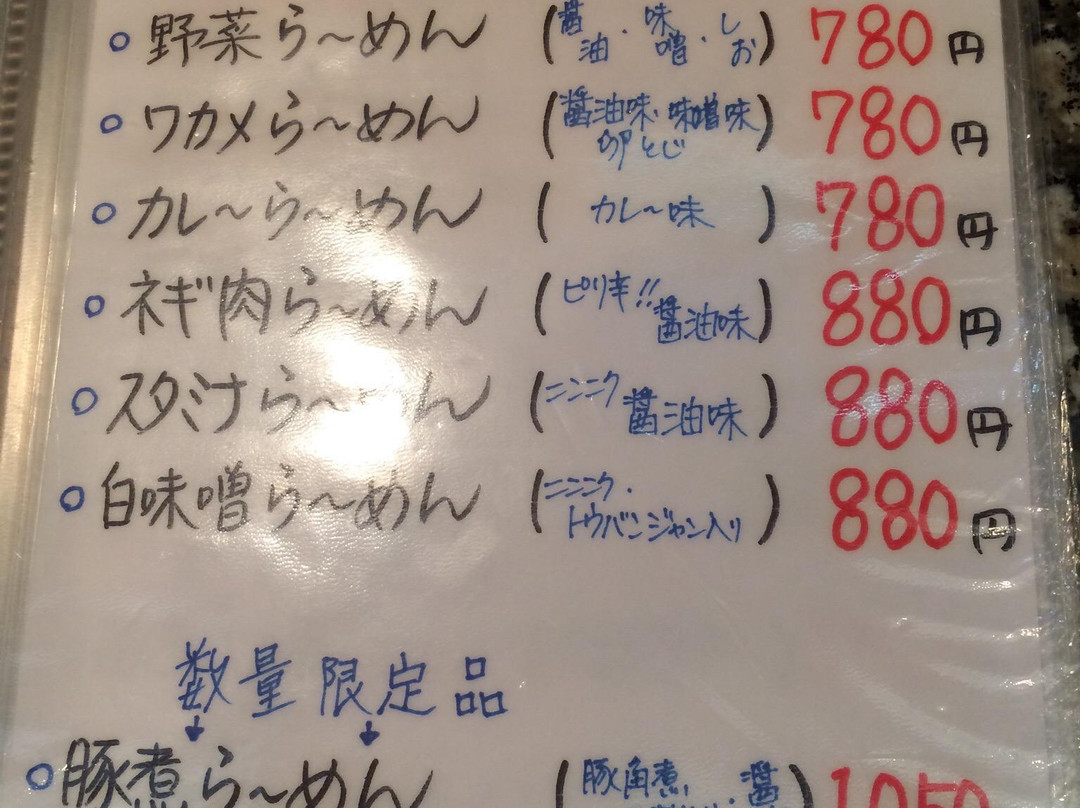 ○ 野菜ら〜めん (醤油・味噌・しお) 780円
○ ワカメら〜めん (醤油味・味噌味 卵とじ) 780円
○ カレ〜ら〜めん (カレ〜味) 780円
○ ネギ肉ら〜めん (ピリ辛!! 醤油味) 880円
○ スタミナら〜めん (ニンニク 醤油味) 880円
○ 白味噌ら〜めん (ニンニク・トウバンジャン入り) 880円
数量限定品
↓ ↓
○ 豚煮ら〜めん (豚角煮 醤) 1050